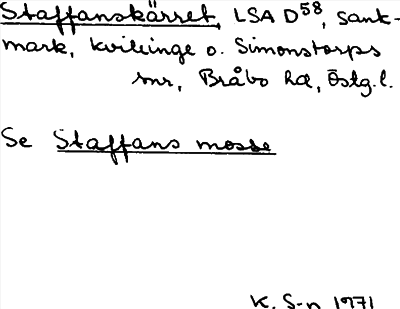 Staffanskärret, LSA D58, sank-
mark, Kvillinge o. Simonstorps
snr, Bråbo hd, Östg.l.
Se Staffans mosse
K. S-n 1971